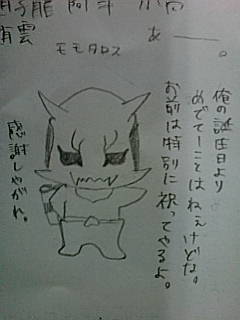 阿斗
雲
モモタロス
あーー。
俺の誕生日より
めでてーことはねぇけどな。
お前は特別に祝ってやるよ。
感謝しやがれ。